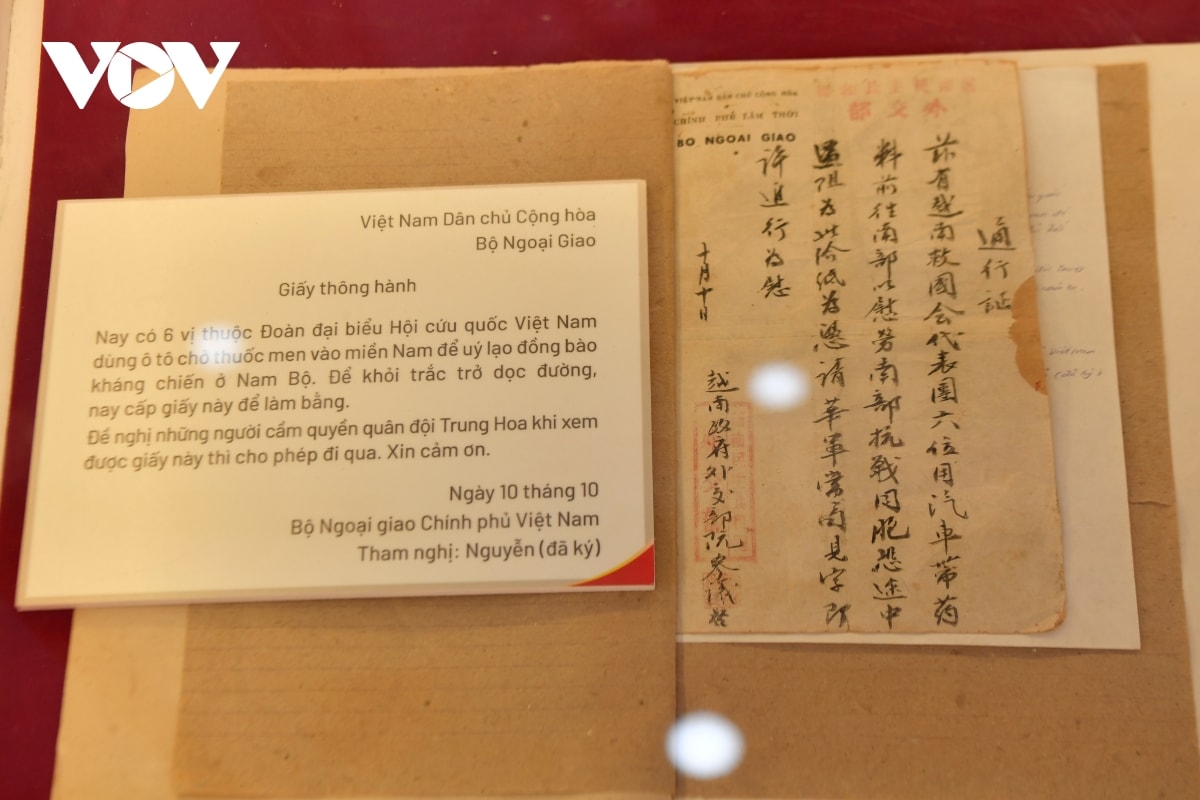 VOV
Việt Nam Dân chủ Cộng hòa
Bộ Ngoại Giao
Giấy thông hành
Nay có 6 vị thuộc Đoàn đại biểu Hội cứu quốc Việt Nam
dùng ô tô chở thuốc men vào miền Nam để uý lạo đồng bào
kháng chiến ở Nam Bộ. Để khỏi trắc trở dọc đường,
nay cấp giấy này để làm bằng.
Đề nghị những người cầm quyền quân đội Trung Hoa khi xem
được giấy này thì cho phép đi qua. Xin cảm ơn.
Ngày 10 tháng 10
Bộ Ngoại giao Chính phủ Việt Nam
Tham nghị: Nguyễn (đã ký)
VIỆT NAM DÂN CHỦ CỘNG HÒA
CHÍNH PHỦ LÂM THỜI
BỘ NGOẠI GIAO
外交部
通行証
茲有越南救國会代表團六位用汽車帶药
料前往南部以慰劳南部抗战同胞恐途中
遇阻为此给纸为憑请華軍当局見字即
許進行为慰
十月十日
越南政府外交部阮参議